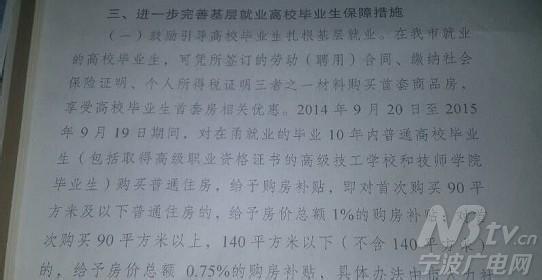 三、进一步完善基层就业高校毕业生保障措施
（一）鼓励引导高校毕业生扎根基层就业。在我市就业
的高校毕业生，可凭所签订的劳动（聘用）合同、缴纳社会
保险证明、个人所得税证明三者之一材料购买首套商品房，
享受高校毕业生首套房相关优惠。2014 年 9 月 20 日至 2015
年 9 月 19 日期间，对在甬就业的毕业 10 年内普通高校毕业
生（包括取得高级职业资格证书的高级技工学校和技师学院
毕业生）购买普通住房，给予购房补贴，即对首次购买 90 平
方米及以下普通住房的，给予房价总额 1%的购房补贴；对首
次购买 90 平方米以上，140 平方米以下（不含 140 平方米）
的，给予房价总额 0.75%的购房补贴，具体办法由市
宁波广电网